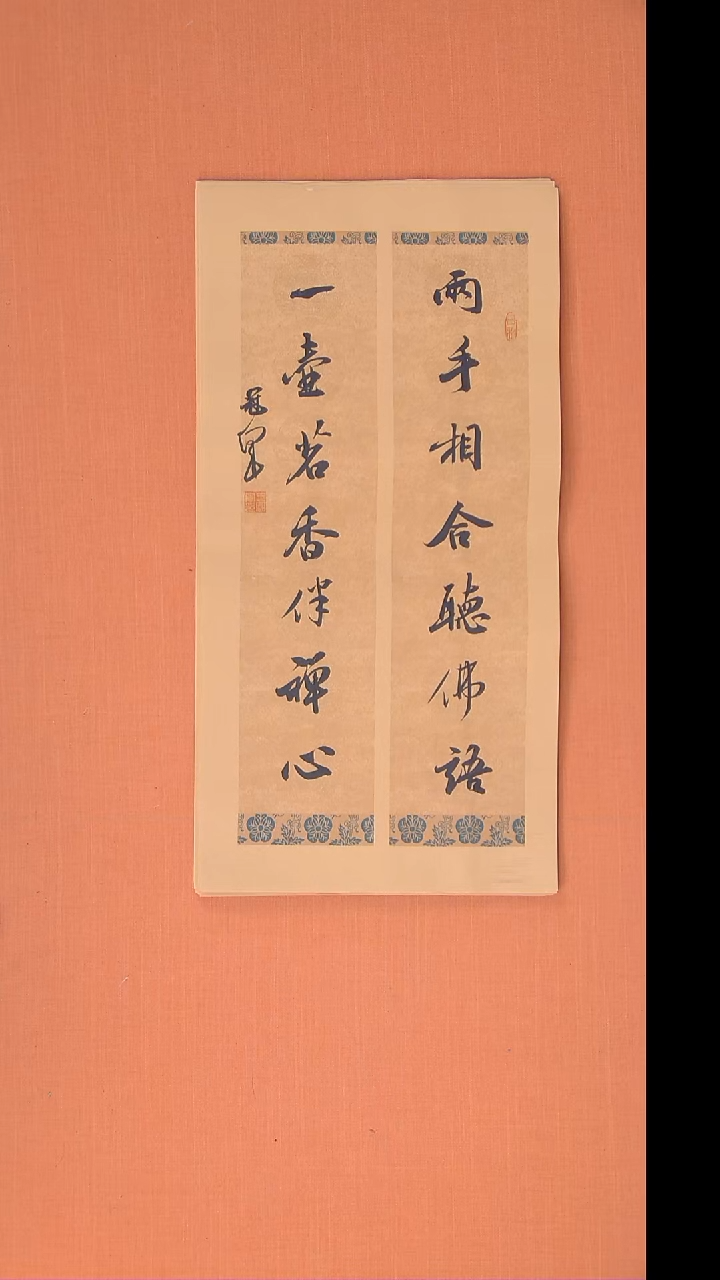 兩手相合聽佛語
一壺茗香伴禪心